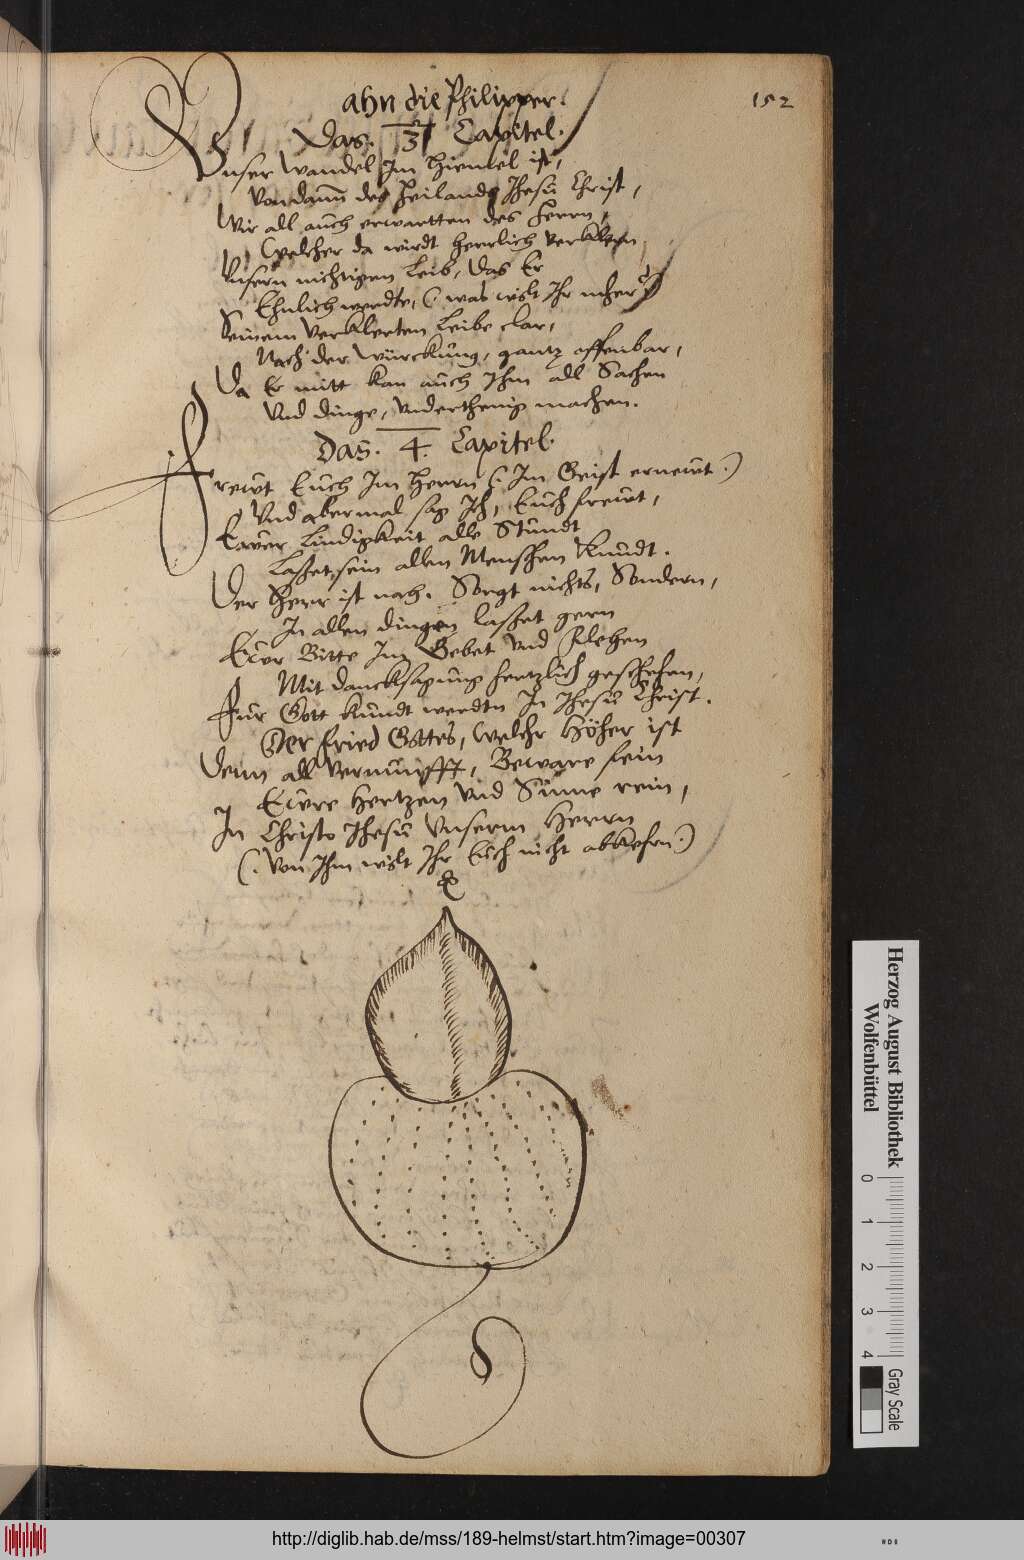 152
ahn die Philipper.
Das. 3 Capitel.
Vnser Wandel Im Himmel ist,
Von dann des Heilands Jhesu Christ,
Wir all auch erwartten des Herrn,
Welcher da wirdt herrlich verklern
Vnsern nichtigen Leib, Das Er
Ehnlich werdte, (was wolt Ihr mher?)
Seinem Verklerten Leibe clar,
Nach der Würckung, gantz offenbar,
Da Er mitt kan auch Ihm all Sachen
Vnd dinge, Vnderthenig machen.
Das. 4. Capitel.
Frewt Euch Im Herrn (. Im Geist ernewt .)
Vnd abermal sag Ich, Euch frewt,
Ewer Lindigkeit alle Stundt
Lasset sein allen Menschen Kundt.
Der Herr ist nah. Sorgt nichts, Sondern,
In allen dingen lasset gern
Ewr Bitte Im Gebet vnd Flehen
Mit dancksagung hertzlich geschehen,
Für Gott kundt werdtn In Jhesu Christ.
Der fried Gottes, welchr Höher ist
Denn all Vernunfft, Beware fein
Ewre Hertzen Vnd Sinne rein,
In Christo Jhesu Vnserm Herrn
(. Von Ihm wolt Ihr Euch nicht abkehrn .)
Herzog August Bibliothek
Wolfenbüttel
0 1 2 3 4
Gray Scale
http://diglib.hab.de/mss/189-helmst/start.htm?image=00307